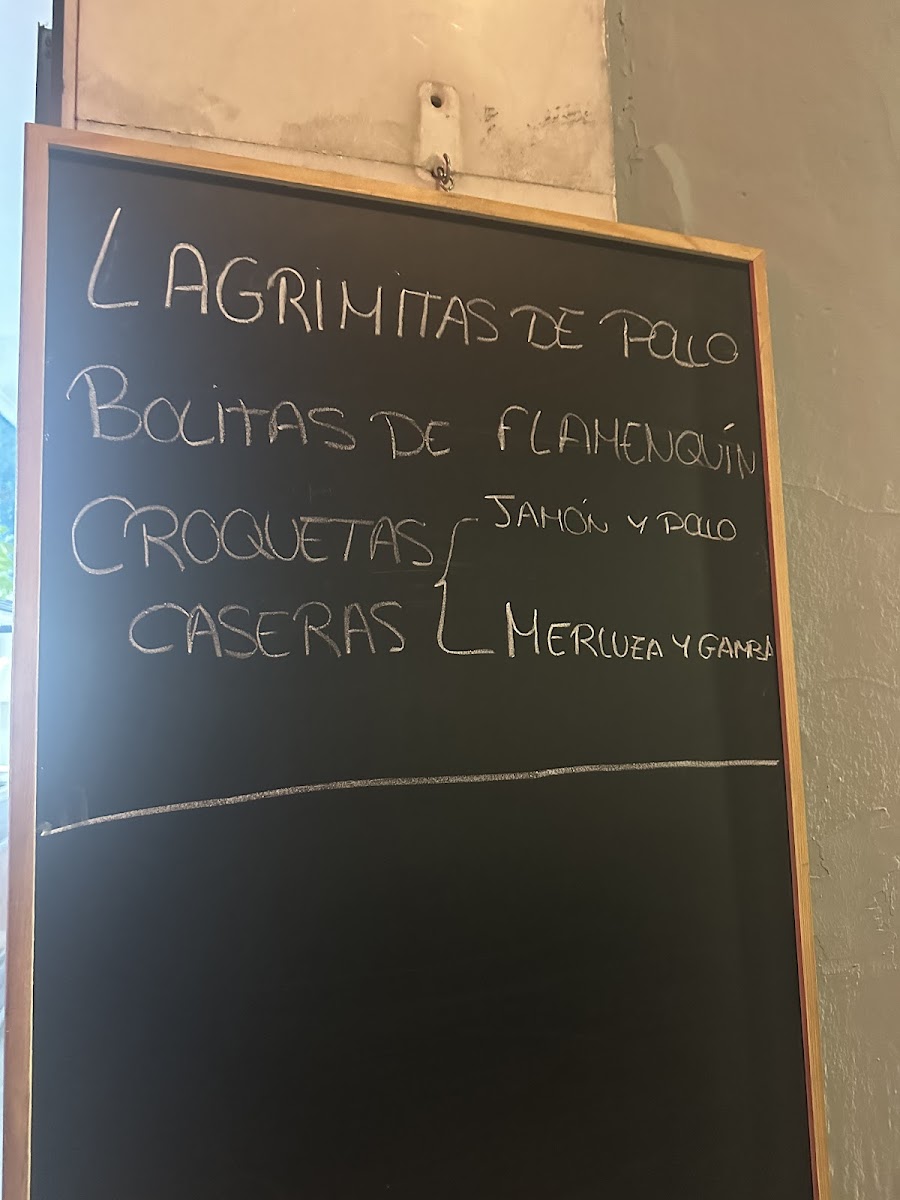 LAGRIMITAS DE POLLO
BOLITAS DE FLAMENQUÍN
CROQUETAS JAMÓN Y POLLO
CASERAS MERLUZA Y GAMBA